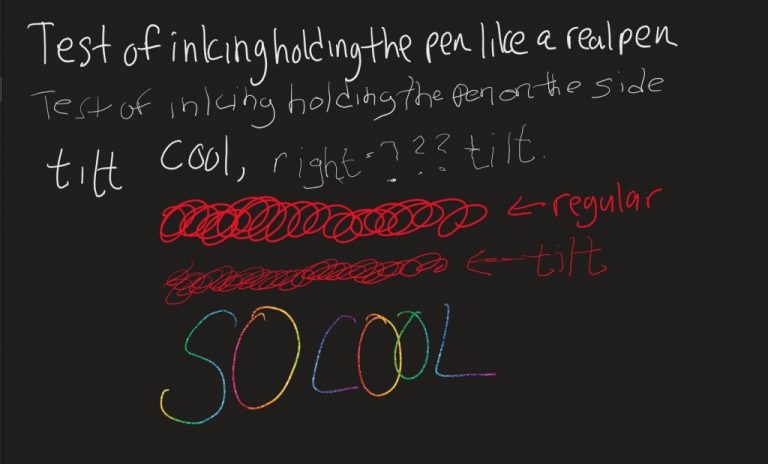 Test of inking holding the pen like a real pen
Test of inking holding the pen on the side
tilt cool, right??? tilt.
← regular
← tilt
SO COOL